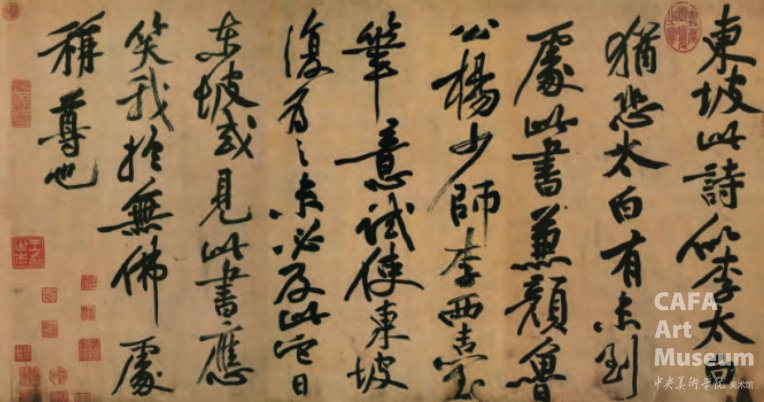 東坡此詩似李太白
猶恐太白有未到
處此書兼顏魯
公楊少師李西臺
筆意試使東坡
復為之未必及此它日
東坡或見此書應
笑我於無佛處
稱尊也
CAFA
Art
Museum
中央美術學院 美术馆